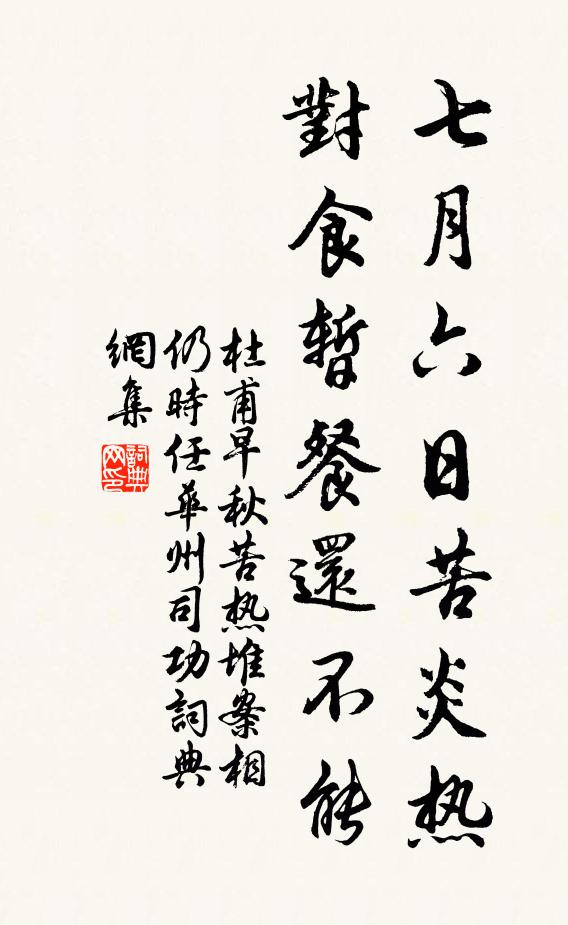 七月六日苦炎热
對食暫餐還不能
杜甫早秋苦热堆案相
仍時任華州司功詞典
網集
詞典
网印